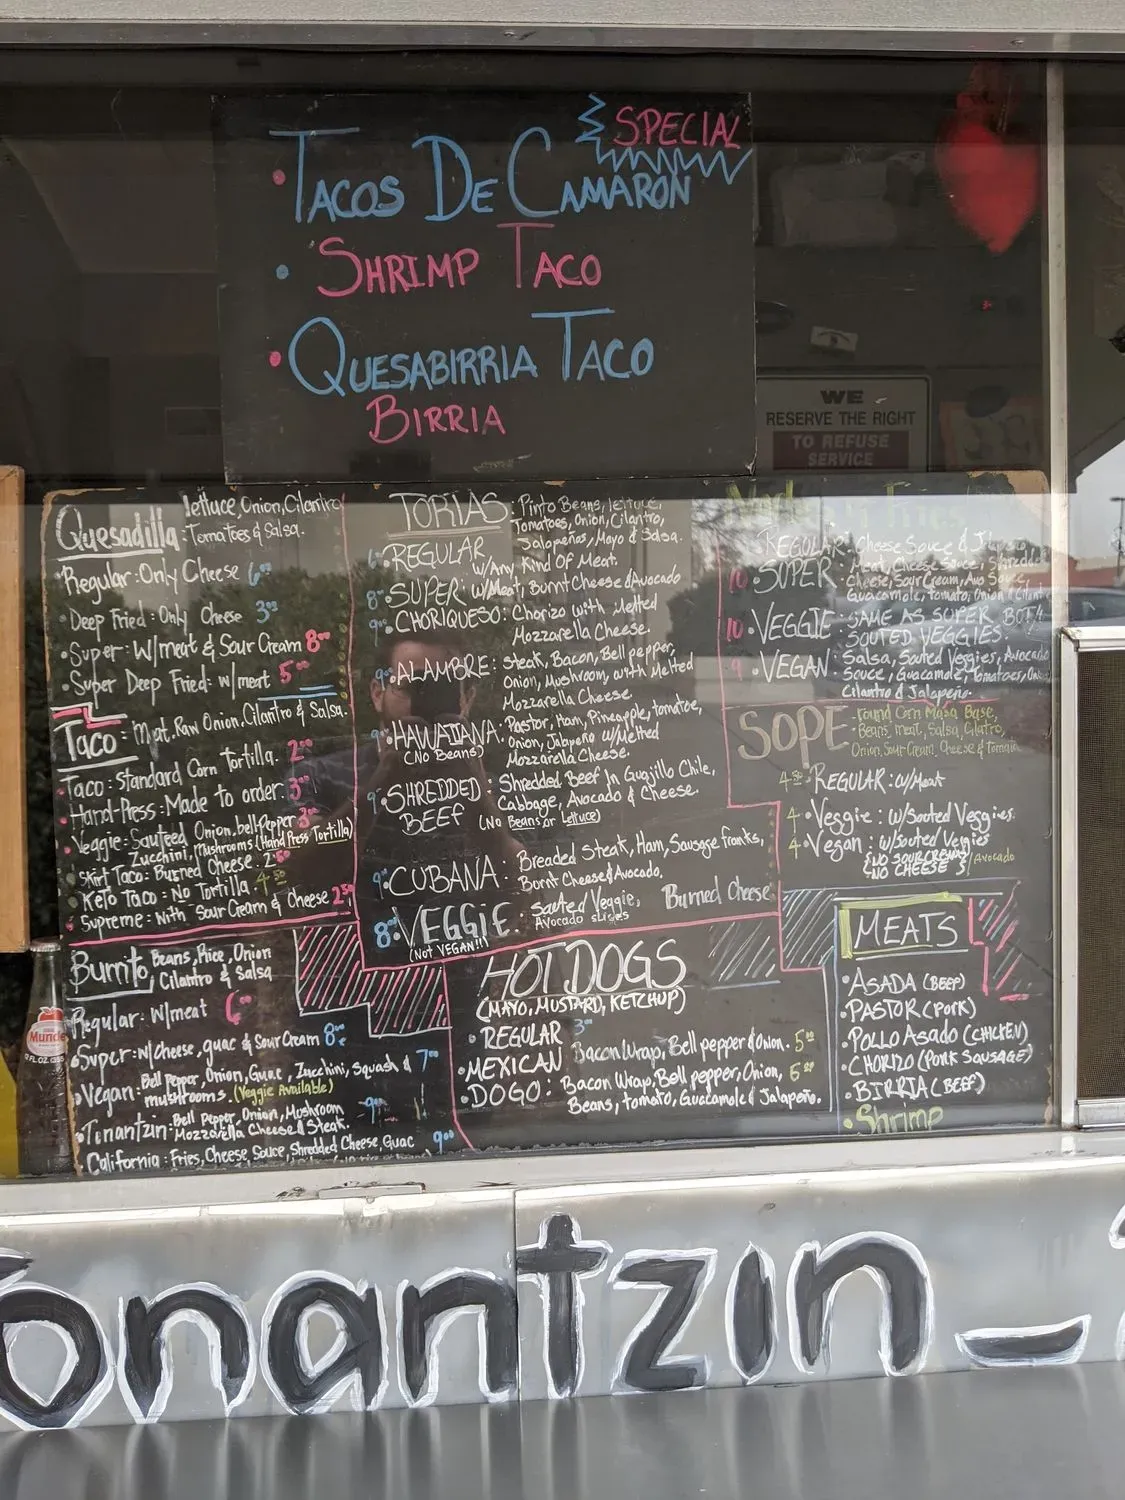 SPECIAL
• TACOS DE CAMARON
• SHRIMP TACO
• QUESABIRRIA TACO
BIRRIA
WE
RESERVE THE RIGHT
TO REFUSE
SERVICE
Quesadilla: lettuce, Onion, Cilantro
Tomatoes & Salsa.
• Regular: Only Cheese 6.00
• Deep Fried: Only Cheese 3.00
• Super: W/meat & Sour Cream 8.00
• Super Deep Fried: w/meat 5.00
Taco: Meat, Raw Onion, Cilantro & Salsa.
Taco: Standard Corn Tortilla. 2.00
Hand-Press: Made to order: 3.00
• Veggie: Sauteed Onion, bell Pepper 3.00
Zucchini, Mushrooms (Hand Press Tortilla)
• Skirt Taco: Burned Cheese: 2.50
• Keto Taco: No Tortilla. 4.50
• Supreme: with Sour Cream & Cheese 2.50
Burrito: Beans, Rice, Onion
Cilantro & Salsa
Regular: W/meat 6.00
• Super: w/cheese, guac & Sour Cream 8.00
• Vegan: Bell Pepper, Onion, Guac, Zucchini, Squash & 7.00
mushrooms. (Veggie Available)
• Tonantzin: Bell Pepper, Onion, Mushroom
Mozzarella Cheese & Steak. 9.00
California: Fries, Cheese Souce, Shredded Cheese, Guac 9.00
TORTAS: Pinto Beans, lettuce,
Tomatoes, Onion, Cilantro,
Jalapeños, Mayo & Salsa.
• REGULAR w/Any Kind Of Meat.
8.00 • SUPER: w/Meat, Burnt Cheese & Avocado
9.00 • CHORIQUESO: Chorizo with Melted
Mozzarella Cheese.
9.00 • ALAMBRE: Steak, Bacon, Bell pepper,
Onion, Mushroom, with Melted
Mozzarella Cheese
9.00 • HAWAIIANA: Pastor, Ham, Pineapple, tomatoe,
(No Beans) Onion, Jalapeño w/Melted
Mozzarella Cheese.
9.00 • SHREDDED BEEF: Shredded Beef In Guajillo Chile,
Cabbage, Avocado & Cheese.
(No Beans or Lettuce)
9.00 • CUBANA: Breaded Steak, Ham, Sausage franks,
Bornt Cheese & Avocado.
8.00 • VEGGIE: Sauted Veggie, Burned Cheese
(NOT VEGAN!!) Avocado slises
HOT DOGS
(MAYO, MUSTARD, KETCHUP)
• REGULAR 3.00
• MEXICAN Bacon Wrap, Bell pepper & Onion. 5.00
• DOGO: Bacon Wrap, Bell pepper, Onion,
Beans, tomato, Guacamole & Jalapeño.
REGULAR: Cheese Souce &
10 • SUPER: Meat, Cheese Souce, Shredded
Cheese, Sour Cream, Avo Souce,
Guacamole, tomato, Onion & Cilantro
10 • VEGGIE: SAME AS SUPER BUT w/
SOUTED VEGGIES.
9 • VEGAN: Salsa, Souted Veggies, Avocado
Souce, Guacamole, Tomatoes, Onion
Cilantro & Jalapeño.
SOPE - round Corn Masa Base,
Beans, Meat, Salsa, Cilatro,
Onion, Sour Cream, Cheese & tomato
4.50 • REGULAR: w/Meat
4 • Veggie: w/Souted Veggies.
4 • Vegan: w/Souted Veggies
{NO SOUR CREAM / Avocado
NO CHEESE}
MEATS
• ASADA (BEEF)
• PASTOR (PORK)
• POLLO ASADO (CHICKEN)
• CHORIZO (PORK SAUSAGE)
• BIRRIA (BEEF)
• Shrimp
Tonantzin